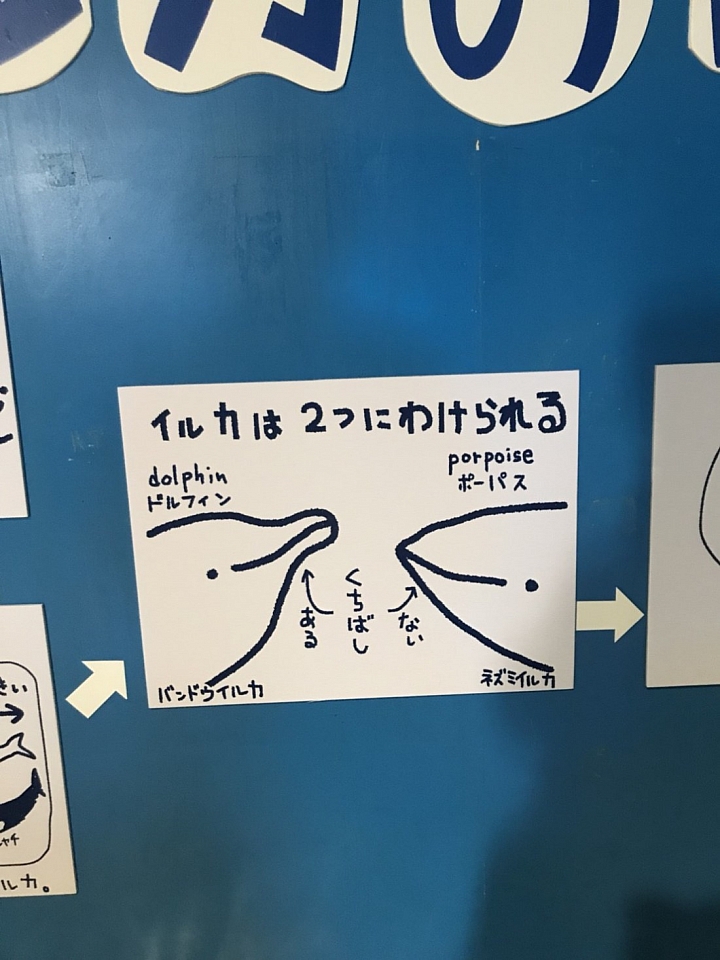 カの
イルカは2つにわけられる
dolphin
ドルフィン
porpoise
ポーパス
くちばし
ある
ない
バンドウイルカ
ネズミイルカ
きい
→
ルカ。